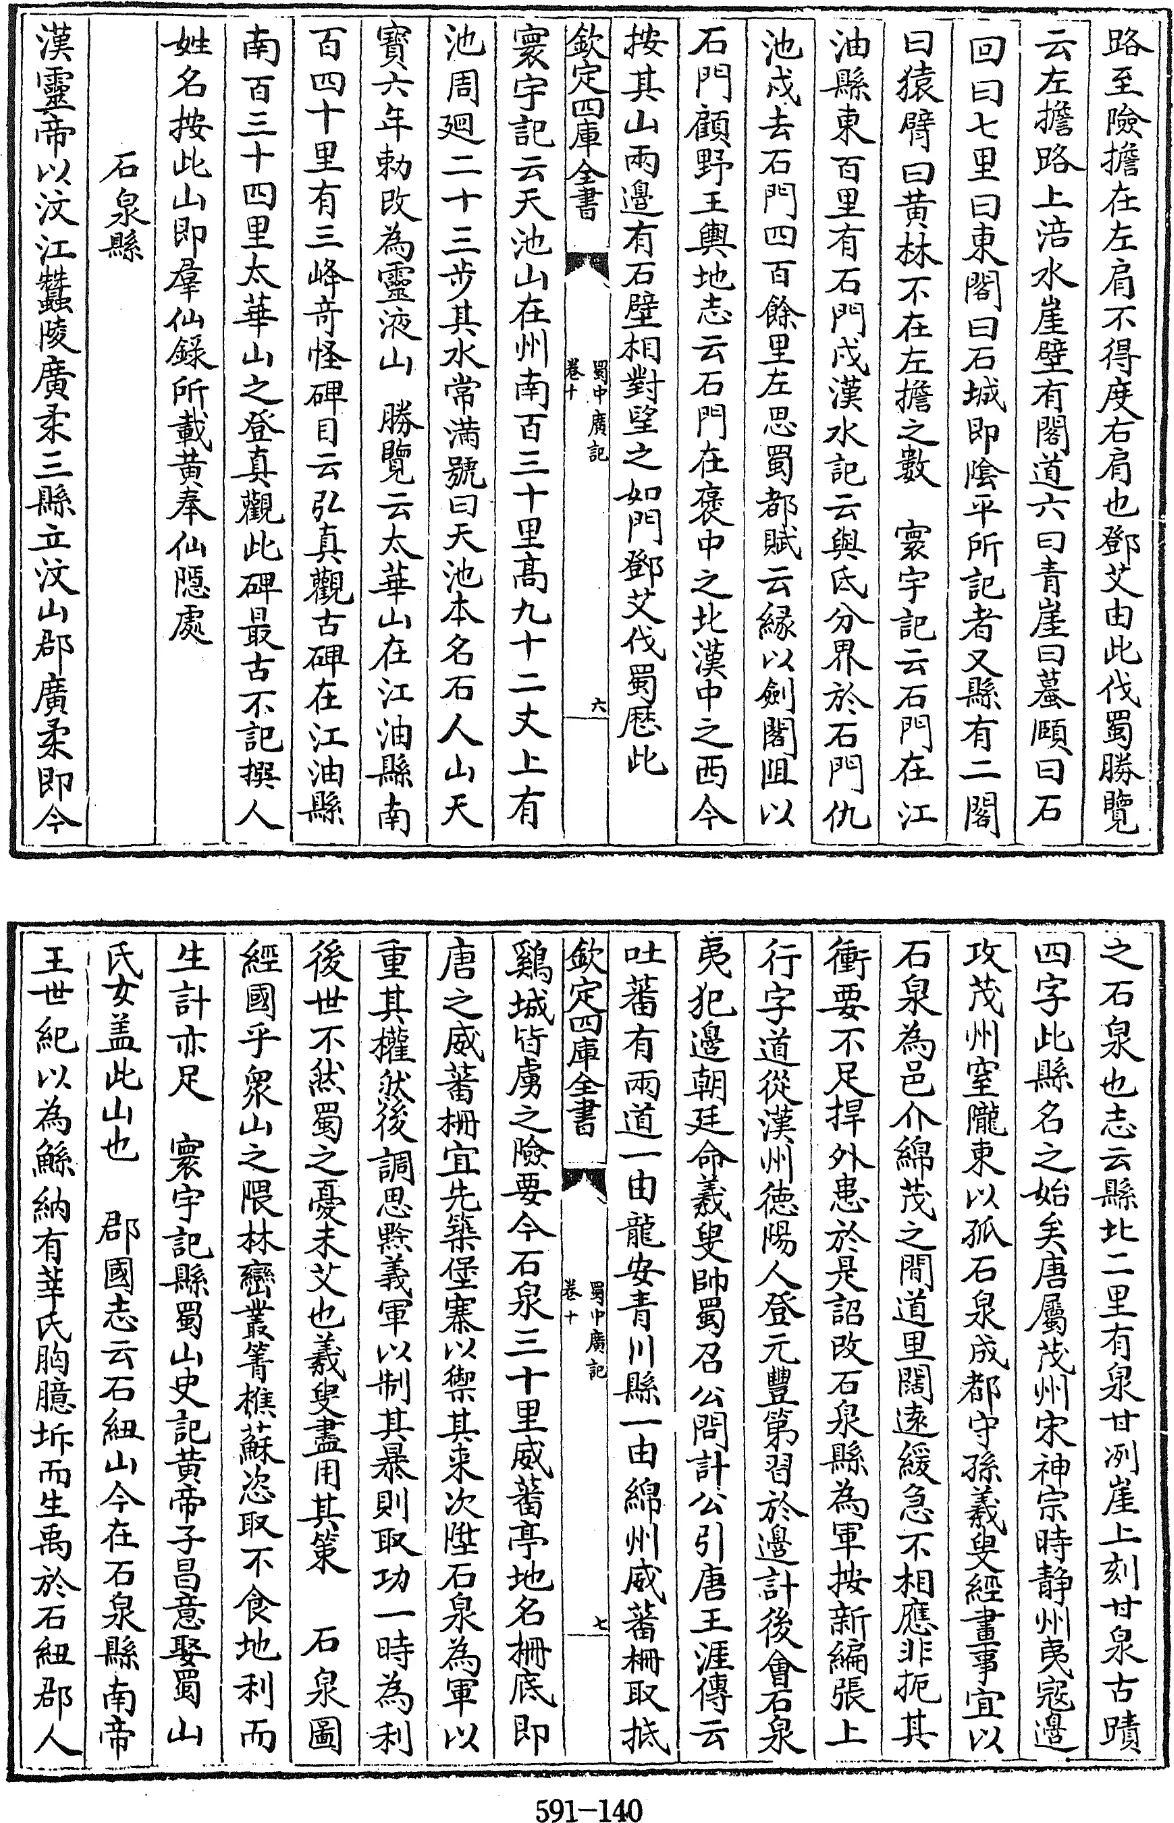 路至險擔在左肩不得度右肩也鄧艾由此伐蜀勝覽
云左擔路上涪水崖壁有閣道六曰青崖曰蟇頥曰石
回曰七里曰東閣曰石城即陰平所記者又縣有二閣
曰猿臂曰黄林不在左擔之數　寰宇記云石門在江
油縣東百里有石門戍漢水記云與氐分界於石門仇
池戍去石門四百餘里左思蜀都賦云縁以劍閣阻以
石門顧野王輿地志云石門在褒中之北漢中之西今
按其山兩邊有石壁相對望之如門鄧艾伐蜀歴此
欽定四庫全書
蜀中廣記
卷十
六
寰宇記云天池山在州南百三十里髙九十二丈上有
池周廻二十三步其水常滿號曰天池本名石人山天
寶六年勅改為靈液山　勝覽云太華山在江油縣南
百四十里有三峰竒怪碑目云弘真觀古碑在江油縣
南百三十四里太華山之登真觀此碑最古不記撰人
姓名按此山即羣仙錄所載黄奉仙隱處
石泉縣
漢靈帝以汶江蠶陵廣柔三縣立汶山郡廣柔即今
之石泉也志云縣北二里有泉甘冽崖上刻甘泉古蹟
四字此縣名之始矣唐屬茂州宋神宗時靜州夷寇邊
攻茂州窒隴東以孤石泉成都守孫羲叟經畫事宜以
石泉為邑介綿茂之間道里闊遠緩急不相應非扼其
衝要不足捍外患於是詔改石泉縣為軍按新編張上
行字道從漢州徳陽人登元豐第習於邊計後會石泉
夷犯邊朝廷命羲叟帥蜀召公問計公引唐王涯傳云
吐蕃有兩道一由龍安青川縣一由綿州威蕃栅取抵
欽定四庫全書
蜀中廣記
卷十
七
鷄城皆虜之險要今石泉三十里威蕃亭地名栅底即
唐之威蕃栅宜先築堡寨以禦其来次陞石泉為軍以
重其權然後調思黔義軍以制其暴則取功一時為利
後世不然蜀之憂未艾也羲叟盡用其策　石泉圖
經國乎衆山之隈林巒叢箐樵蘇恣取不食地利而
生計亦足　寰宇記縣蜀山史記黄帝子昌意娶蜀山
氏女盖此山也　郡國志云石紐山今在石泉縣南帝
王世紀以為鯀納有莘氏胸臆坼而生禹於石紐郡人
591-140